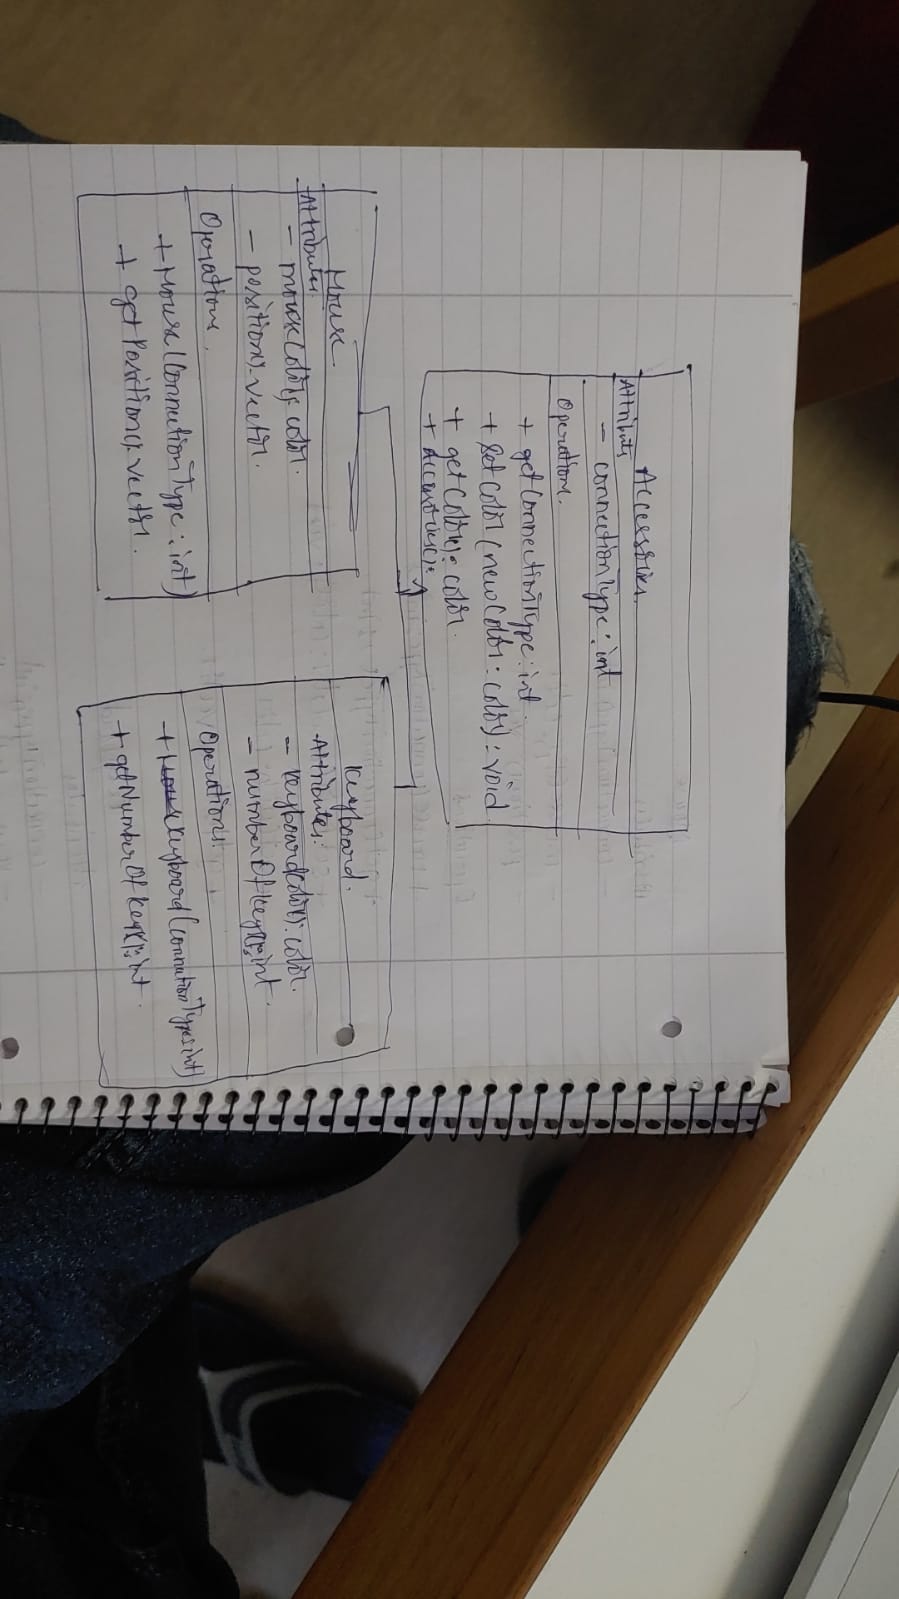 Accessories.
Attributes
- connectionType: int
Operations.
+ getConnectionType: int.
+ SetColor (newColor: color): void
+ getColor(): color.
+ Accessories():
Mouse.
Attributes.
- mouseColor: color.
- position(): vector.
Operations.
+ Mouse (ConnectionType: int)
+ getPosition(): vector.
Keyboard.
Attributes:
- KeyboardColor(): color.
- numberOfKeys(): int.
Operations.
+ Keyboard (connectionType: int)
+ getNumberOfKeys(): int.